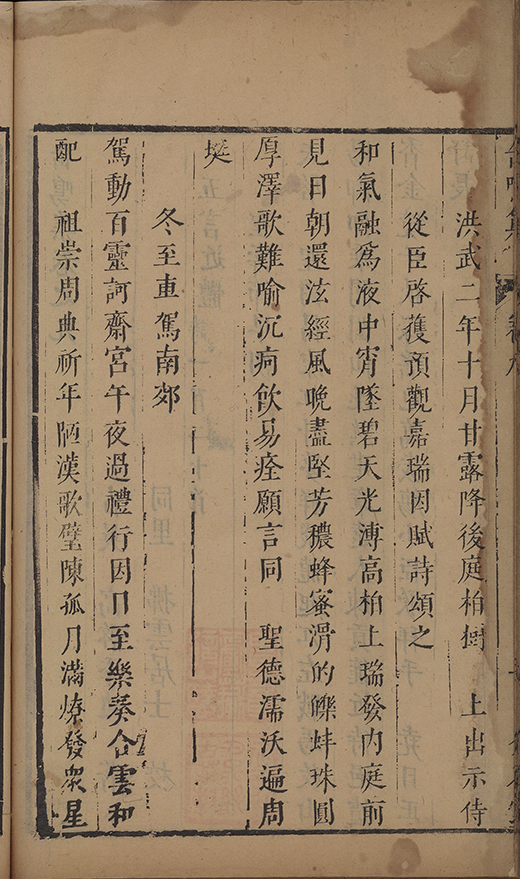 洪武二年十月甘露降後庭柏樹　上出示侍
從臣啓獲預觀嘉瑞因賦詩頌之
和氣融爲液中宵墜碧天光溥高柏上瑞發內庭前
見日朝還泫經風晚盡堅芳穠蜂蜜滑的皪蚌珠圓
厚澤歌難喻沉痾飲易痊願言同　聖德濡沃遍周
埏
冬至車駕南郊
駕動百靈訶齋宮午夜過禮行因日至樂奏合雲和
配　祖崇周典祈年陋漢歌璧陳孤月滿燎發衆星